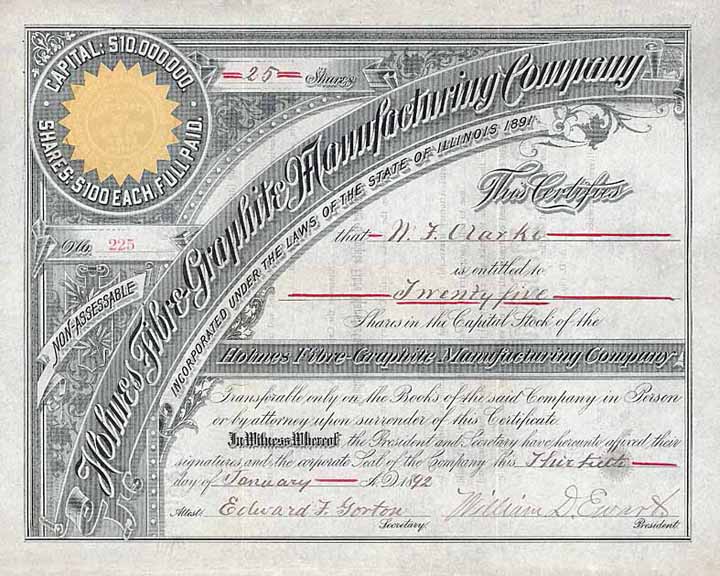 CAPITAL: $10.000000
SHARES: $100 EACH FULL PAID.
25 Shares
Holmes Fibre-Graphite Manufacturing Company
INCORPORATED UNDER THE LAWS OF THE STATE OF ILLINOIS 1891
No. 225
NON-ASSESSABLE
This Certifies
that W. F. Clarke
is entitled to
Twenty five
Shares in the Capital Stock of the
Holmes Fibre-Graphite Manufacturing Company
Transferable only on the Books of the said Company in Person
or by attorney upon surrender of this Certificate.
In Witness Whereof the President and Secretary have hereunto affixed their
signatures and the corporate Seal of the Company this Thirtieth
day of January A.D. 1892
Attest: Edward F. Gorton William D. Ewart
Secretary. President.